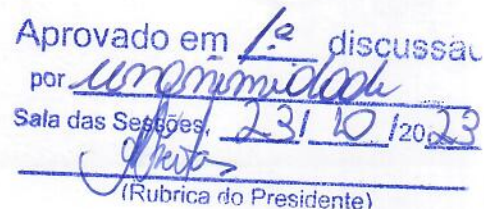 Aprovado em 1.ª discussão
por unanimidade
Sala das Sessões, 23/10/2023
(Rubrica do Presidente)